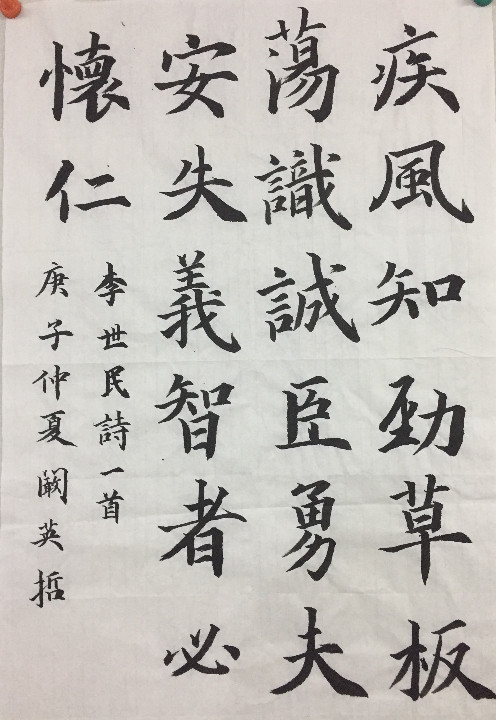 疾風知勁草板
蕩識誠臣勇夫
安失義智者必
懷仁
李世民詩一首
庚子仲夏闞英哲